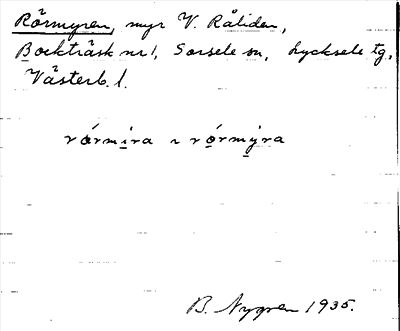 Rörmyren, myr V. Råliden,
Bockträsk nr 1, Sorsele sn, Lycksele tg,
Västerb. l.
rórmira ~ rórmýra
B. Nygren 1935.